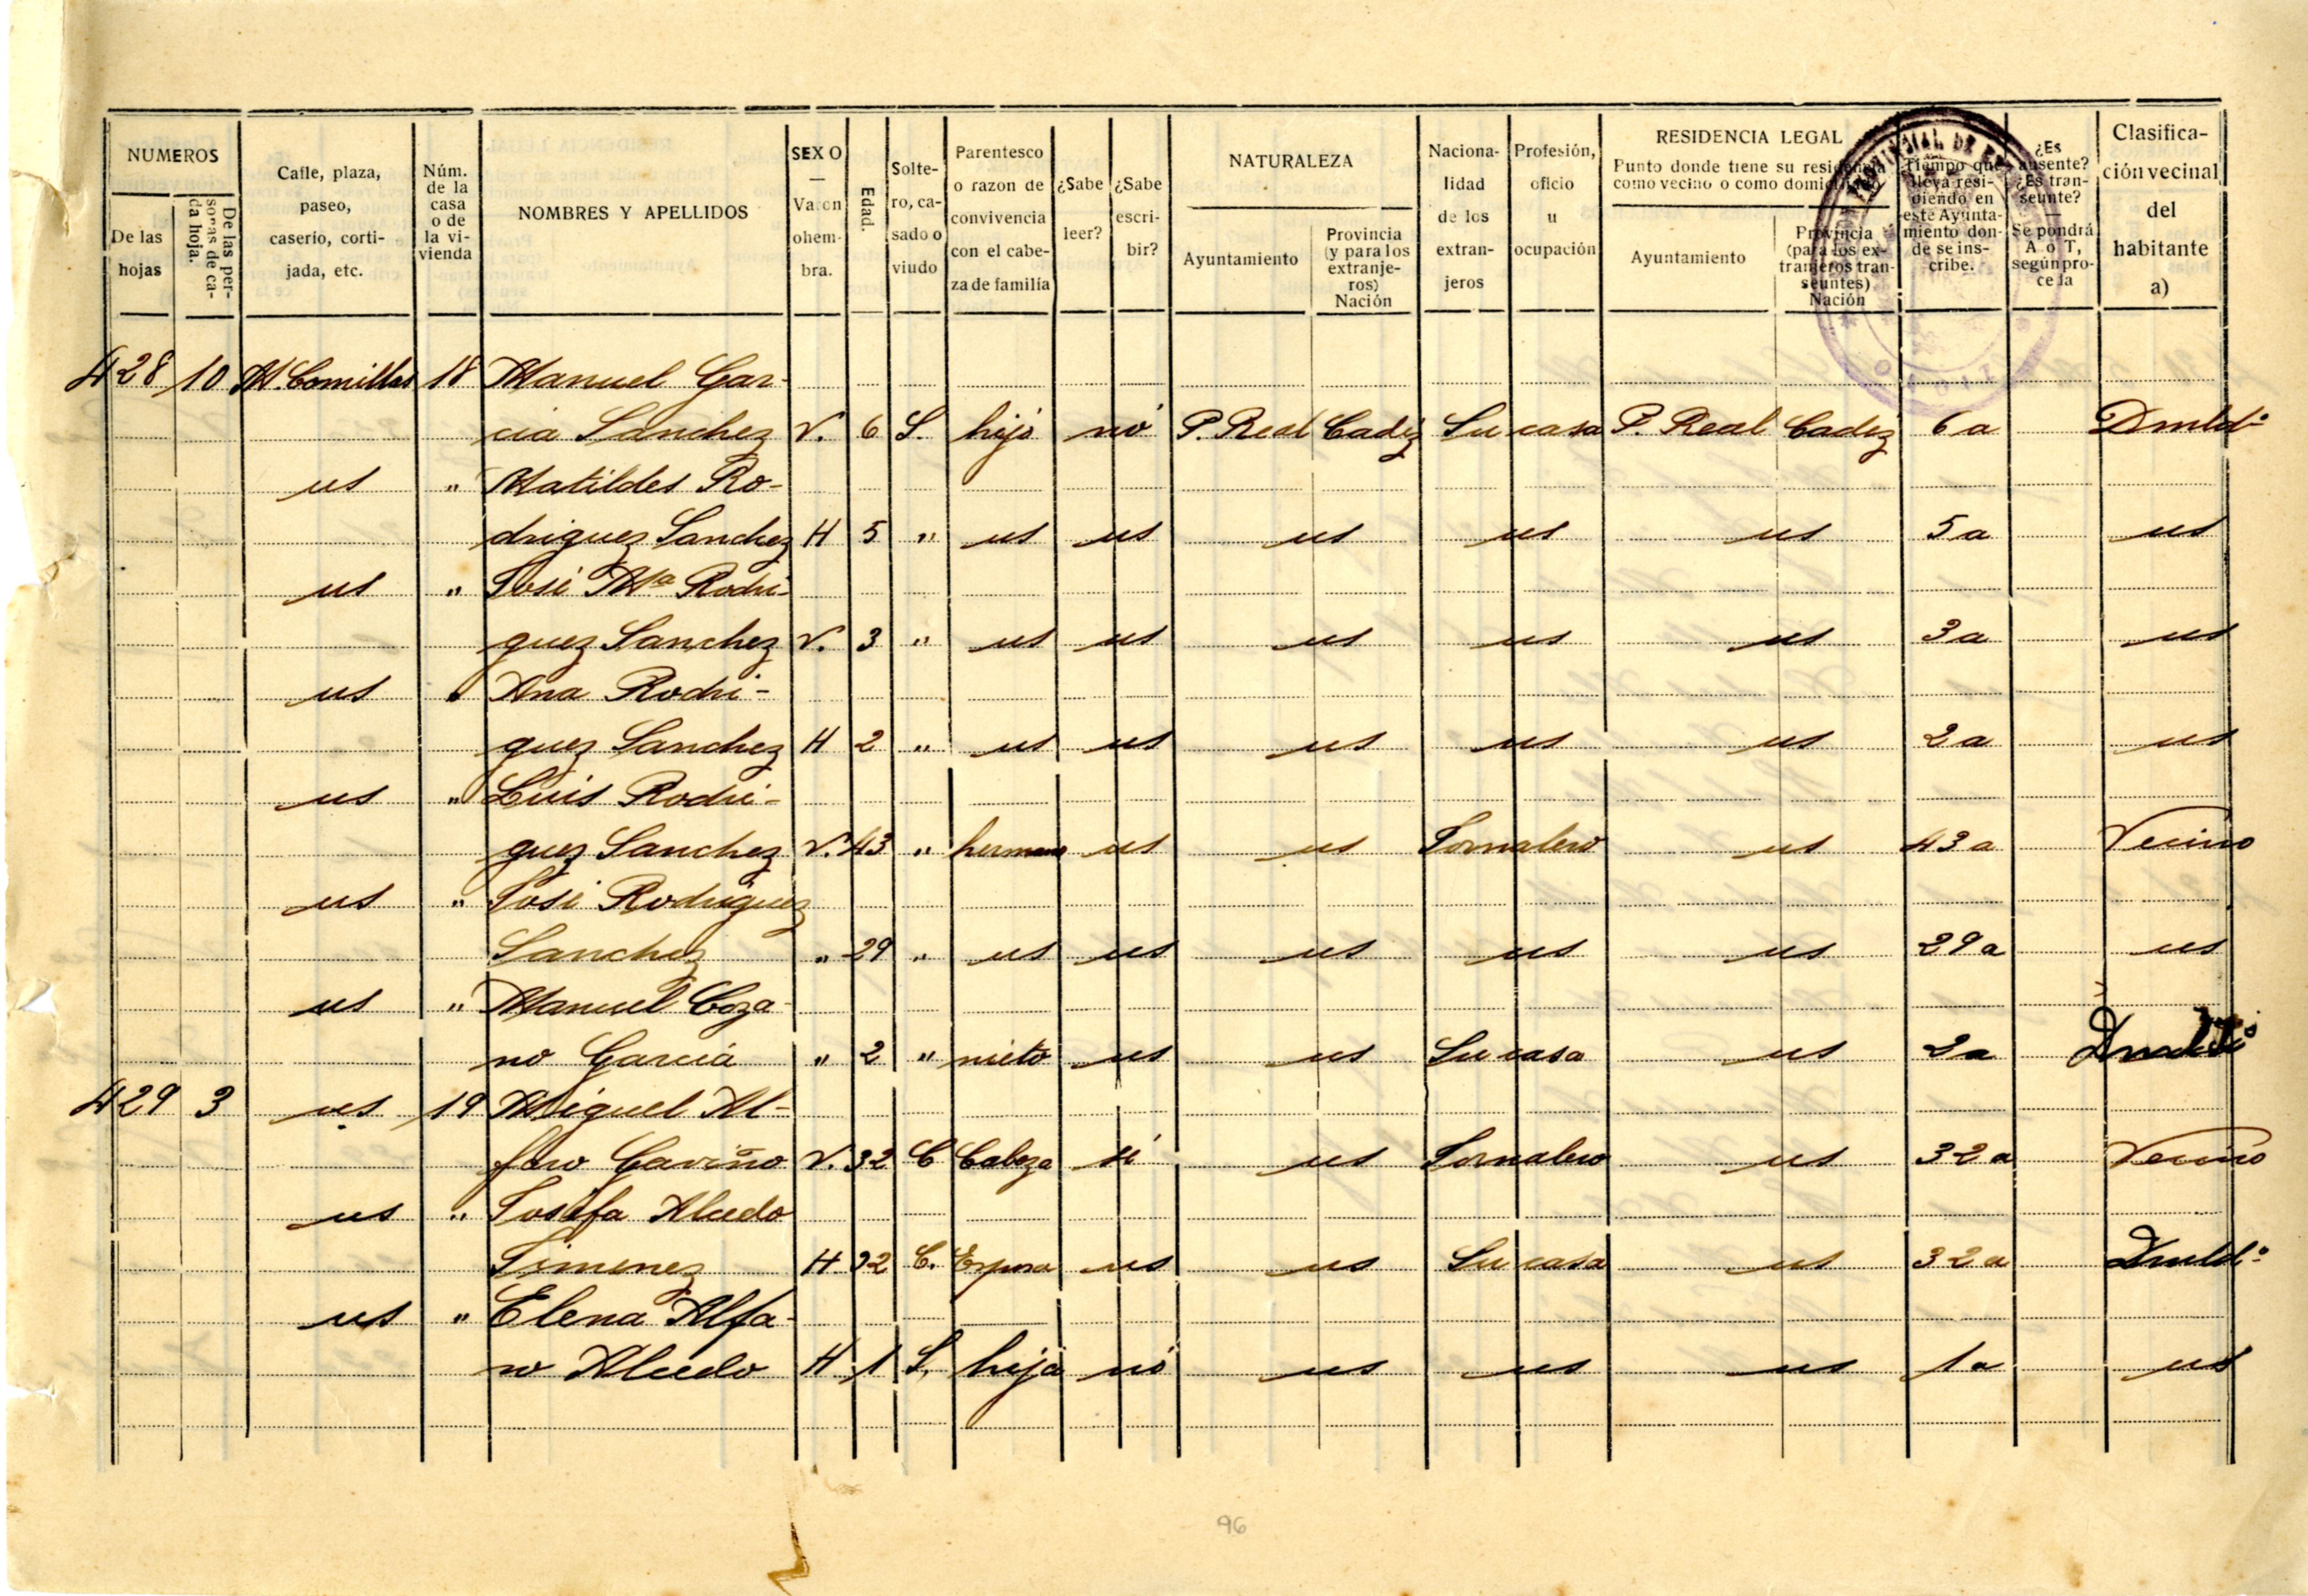 NUMEROS
De las hojas
De las personas de cada hoja.
Calle, plaza, paseo, caserío, cortijada, etc.
Núm. de la casa o de la vivienda
NOMBRES Y APELLIDOS
SEXO — Varon o hembra.
Edad.
Soltero, casado o viudo
Parentesco o razon de convivencia con el cabeza de familia
¿Sabe leer?
¿Sabe escribir?
NATURALEZA
Ayuntamiento
Provincia (y para los extranjeros) Nación
Nacionalidad de los extranjeros
Profesión, oficio u ocupación
RESIDENCIA LEGAL
Punto donde tiene su residencia como vecino o como domiciliado
Ayuntamiento
Provincia (para los extranjeros transeuntes) Nación
Tiempo que lleva residiendo en este Ayuntamiento donde se inscribe.
¿Es ausente? ¿Es transeunte? — Se pondrá A o T, según proceda
Clasificación vecinal del habitante a)
428 10 M. Comillas 18 Manuel Gar-
cia Sanchez V. 6 S. hijo nó P. Real Cadiz Su casa P. Real Cadiz 6 a Dmldº
us " Matildes Ro-
driguez Sanchez H 5 " us us us us us 5 a us
us " José Mª Rodri-
guez Sanchez V. 3 " us us us us us 3 a us
us " Ana Rodri-
guez Sanchez H 2 " us us us us us 2 a us
us " Luis Rodri-
guez Sanchez V. 43 " hermano us us Jornalero us 43 a Vecino
us " José Rodriguez
Sanchez " 29 " us us us us us 29 a us
us " Manuel Coza-
no Garcia " 2 " nieto us us Su casa us 2 a
429 3 us 19 Miguel Al-
faro Gaviño V. 32 C Cabeza si us Jornalero us 32 a Vecino
us " Josefa Alcedo
Jimenez H 32 C. Esposa us us Su casa us 32 a Dmldº
us " Elena Alfa-
ro Alcedo H 1 S. hija nó us us us 1 a us
96